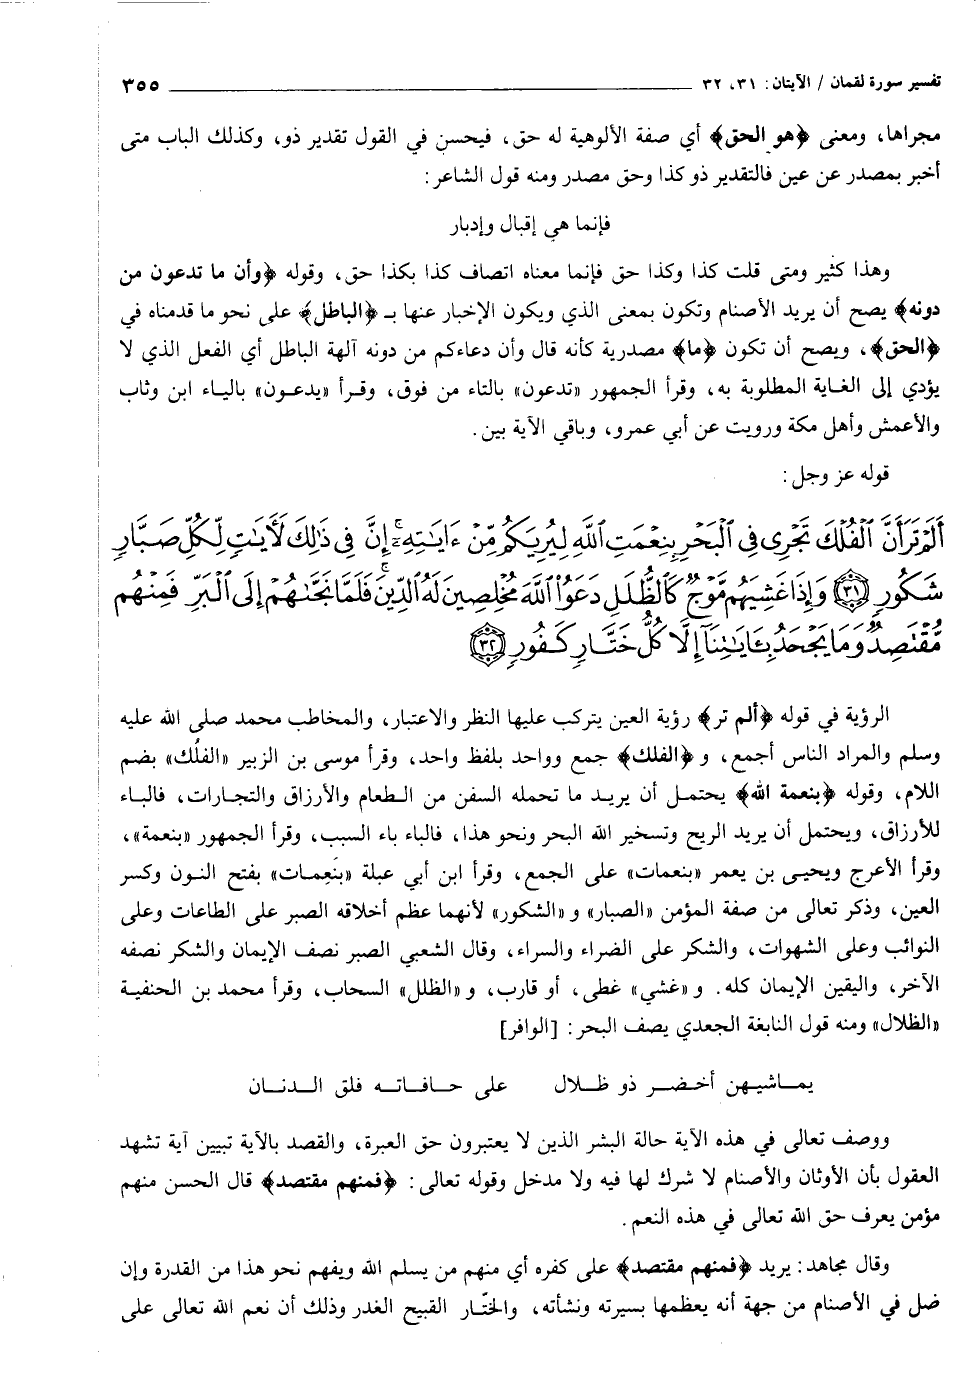 تفسير سورة لقمان / الآيتان: ٣١، ٣٢ ٣٥٥
مجراها، ومعنى ﴿هو الحق﴾ أي صفة الألوهية له حق، فيحسن في القول تقدير ذو، وكذلك الباب متى
أخبر بمصدر عن عين فالتقدير ذو كذا وحق مصدر ومنه قول الشاعر:
فإنما هي إقبال وإدبار
وهذا كثير ومتى قلت كذا وكذا حق فإنما معناه اتصاف كذا بكذا حق، وقوله ﴿وأن ما تدعون من
دونه﴾ يصح أن يريد الأصنام وتكون بمعنى الذي ويكون الإخبار عنها بـ ﴿الباطل﴾ على نحو ما قدمناه في
﴿الحق﴾، ويصح أن تكون ﴿ما﴾ مصدرية كأنه قال وأن دعاءكم من دونه آلهة الباطل أي الفعل الذي لا
يؤدي إلى الغاية المطلوبة به، وقرأ الجمهور «تدعون» بالتاء من فوق، وقرأ «يدعون» بالياء ابن وثاب
والأعمش وأهل مكة ورويت عن أبي عمرو، وباقي الآية بين.
قوله عز وجل:
أَلَمْ تَرَ أَنَّ ٱلْفُلْكَ تَجْرِى فِى ٱلْبَحْرِ بِنِعْمَتِ ٱللَّهِ لِيُرِيَكُم مِّنْ ءَايَٰتِهِۦٓ ۚ إِنَّ فِى ذَٰلِكَ لَءَايَٰتٍ لِّكُلِّ صَبَّارٍ
شَكُورٍ ﴿٣١﴾ وَإِذَا غَشِيَهُم مَّوْجٌ كَٱلظُّلَلِ دَعَوُا۟ ٱللَّهَ مُخْلِصِينَ لَهُ ٱلدِّينَ ۚ فَلَمَّا نَجَّىٰهُمْ إِلَى ٱلْبَرِّ فَمِنْهُم
مُّقْتَصِدٌ ۚ وَمَا يَجْحَدُ بِـَٔايَٰتِنَآ إِلَّا كُلُّ خَتَّارٍ كَفُورٍ ﴿٣٢﴾
الرؤية في قوله ﴿ألم تر﴾ رؤية العين يتركب عليها النظر والاعتبار، والمخاطب محمد صلى الله عليه
وسلم والمراد الناس أجمع، و ﴿الفلك﴾ جمع وواحد بلفظ واحد، وقرأ موسى بن الزبير «الفلُك» بضم
اللام، وقوله ﴿بنعمة الله﴾ يحتمل أن يريد ما تحمله السفن من الطعام والأرزاق والتجارات، فالباء
للأرزاق، ويحتمل أن يريد الريح وتسخير الله البحر ونحو هذا، فالباء باء السبب، وقرأ الجمهور «بنعمة»،
وقرأ الأعرج ويحيى بن يعمر «بنعمات» على الجمع، وقرأ ابن أبي عبلة «بنَعِمات» بفتح النون وكسر
العين، وذكر تعالى من صفة المؤمن «الصبار» و«الشكور» لأنهما عظم أخلاقه الصبر على الطاعات وعلى
النوائب وعلى الشهوات، والشكر على الضراء والسراء، وقال الشعبي الصبر نصف الإيمان والشكر نصفه
الآخر، واليقين الإيمان كله. و«غشي» غطى، أو قارب، و «الظلل» السحاب، وقرأ محمد بن الحنفية
«الظلال» ومنه قول النابغة الجعدي يصف البحر: [الوافر]
يماشيهن أخضر ذو ظلال على حافاته فلق الدنان
ووصف تعالى في هذه الآية حالة البشر الذين لا يعتبرون حق العبرة، والقصد بالآية تبيين آية تشهد
العقول بأن الأوثان والأصنام لا شرك لها فيه ولا مدخل وقوله تعالى: ﴿فمنهم مقتصد﴾ قال الحسن منهم
مؤمن يعرف حق الله تعالى في هذه النعم.
وقال مجاهد: يريد ﴿فمنهم مقتصد﴾ على كفره أي منهم من يسلم الله ويفهم نحو هذا من القدرة وإن
ضل في الأصنام من جهة أنه يعظمها بسيرته ونشأته، والختّار القبيح الغدر وذلك أن نعم الله تعالى على